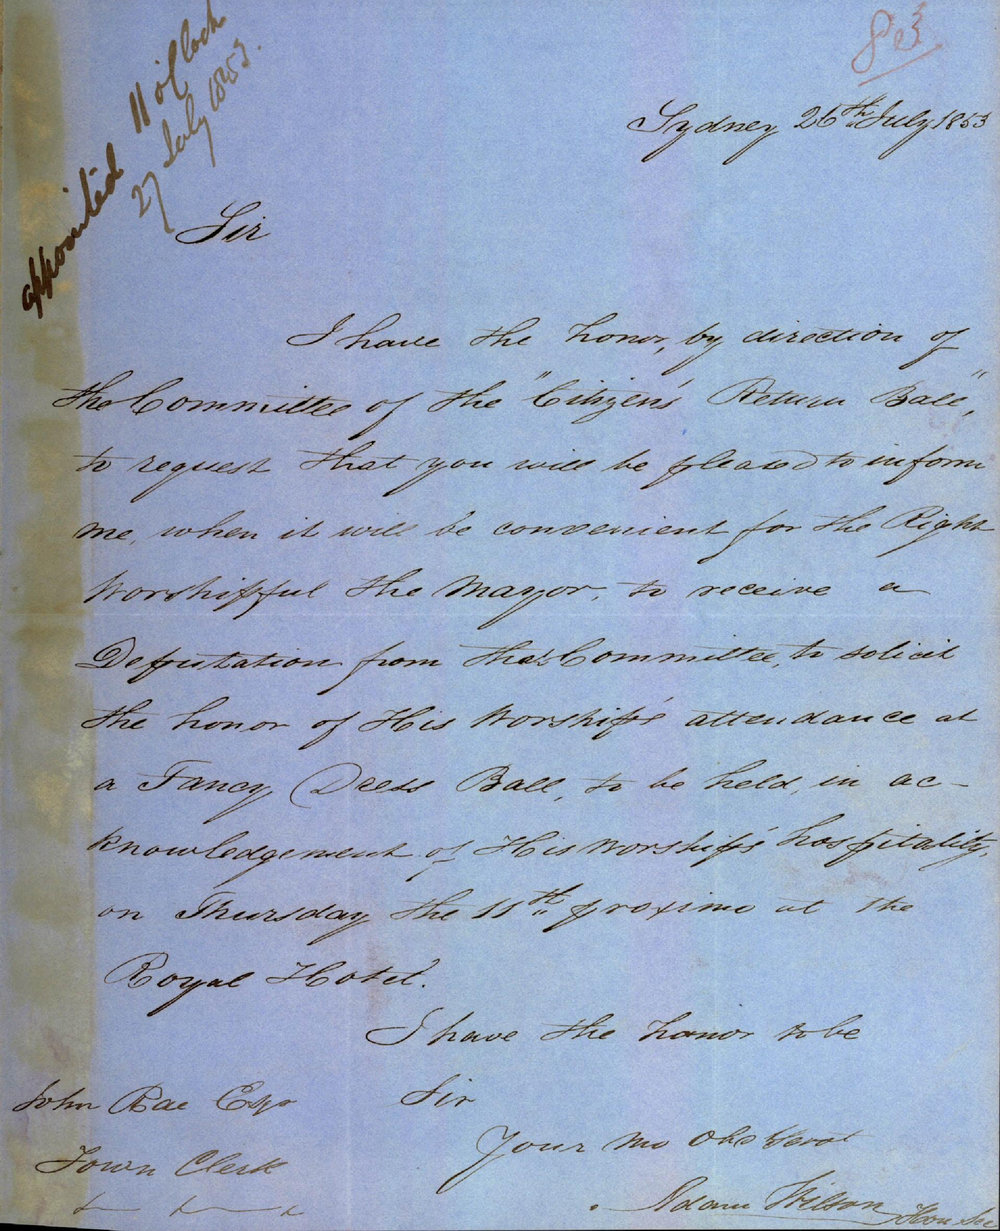 appointed 11 o'Clock
27 July 1853.
Sydney 26th July 1853
Sir
I have the honor, by direction of
the Committee of the "Citizen's Return Ball",
to request that you will be pleased to inform
me, when it will be convenient for the Right
Worshipful the Mayor, to receive a
Deputation from that Committee, to solicit
the honor of His Worship's attendance at
a Fancy Dress Ball, to be held, in ac-
knowledgement of His Worship's hospitality,
on Thursday the 11th proximo at the
Royal Hotel.
I have the honor to be
Sir
Your Mo Obt Servt
Adam Wilson
Hon Sec
John Rae Esqr
Town Clerk